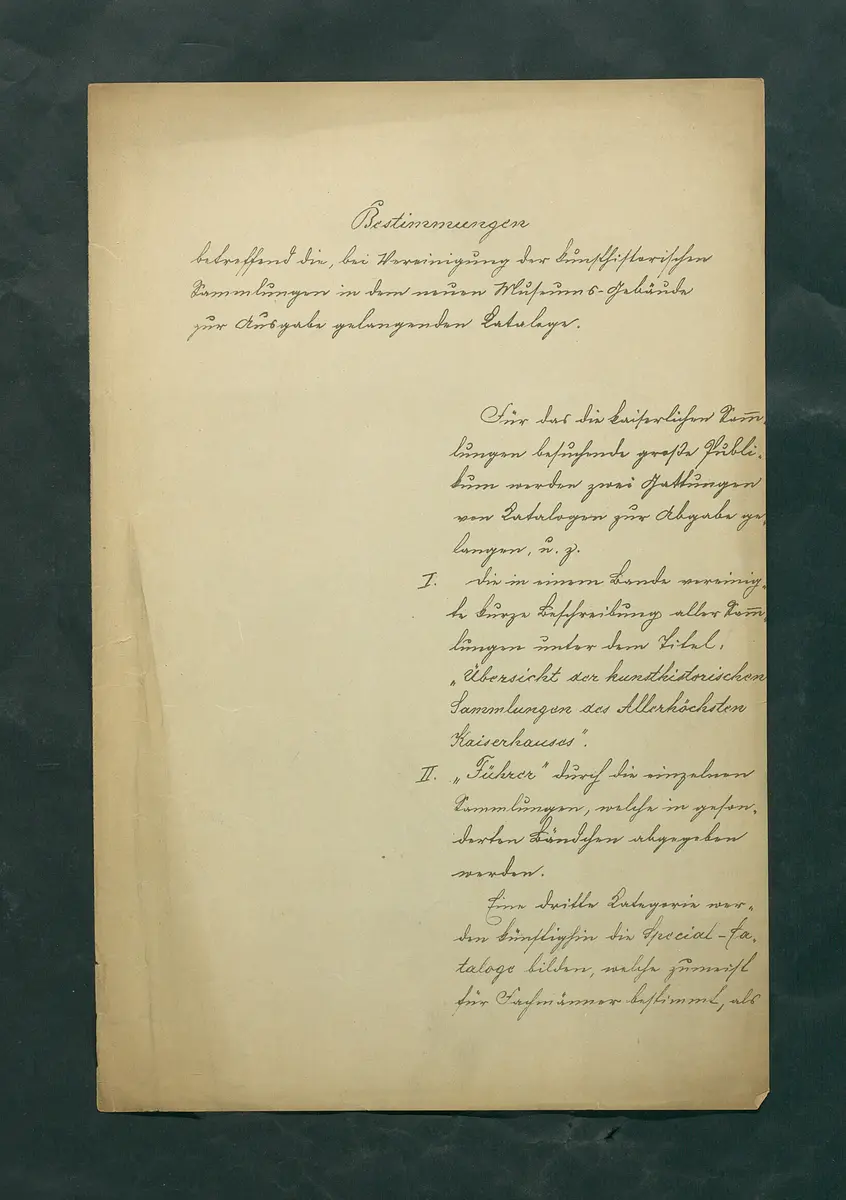 Bestimmungen
betreffend die, bei Vereinigung der kunsthistorischen
Sammlungen in dem neuen Museums-Gebäude
zur Ausgabe gelangenden Kataloge.
Für das die kaiserlichen Sam̅-
lungen besuchende große Publi-
kum werden zwei Gattungen
von Katalogen zur Abgabe ge-
langen, u. z.
I. die in einem Bande vereinig-
te kurze Beschreibung aller Sam̅-
lungen unter dem Titel:
„Übersicht der kunsthistorischen
Sammlungen des Allerhöchsten
Kaiserhauses".
II. „Führer" durch die einzelnen
Sammlungen, welche in geson-
derten Bändchen abgegeben
werden.
Eine dritte Kategorie wer-
den künftighin die Special-Ka-
taloge bilden, welche zumeist
für Fachmänner bestimmt, als